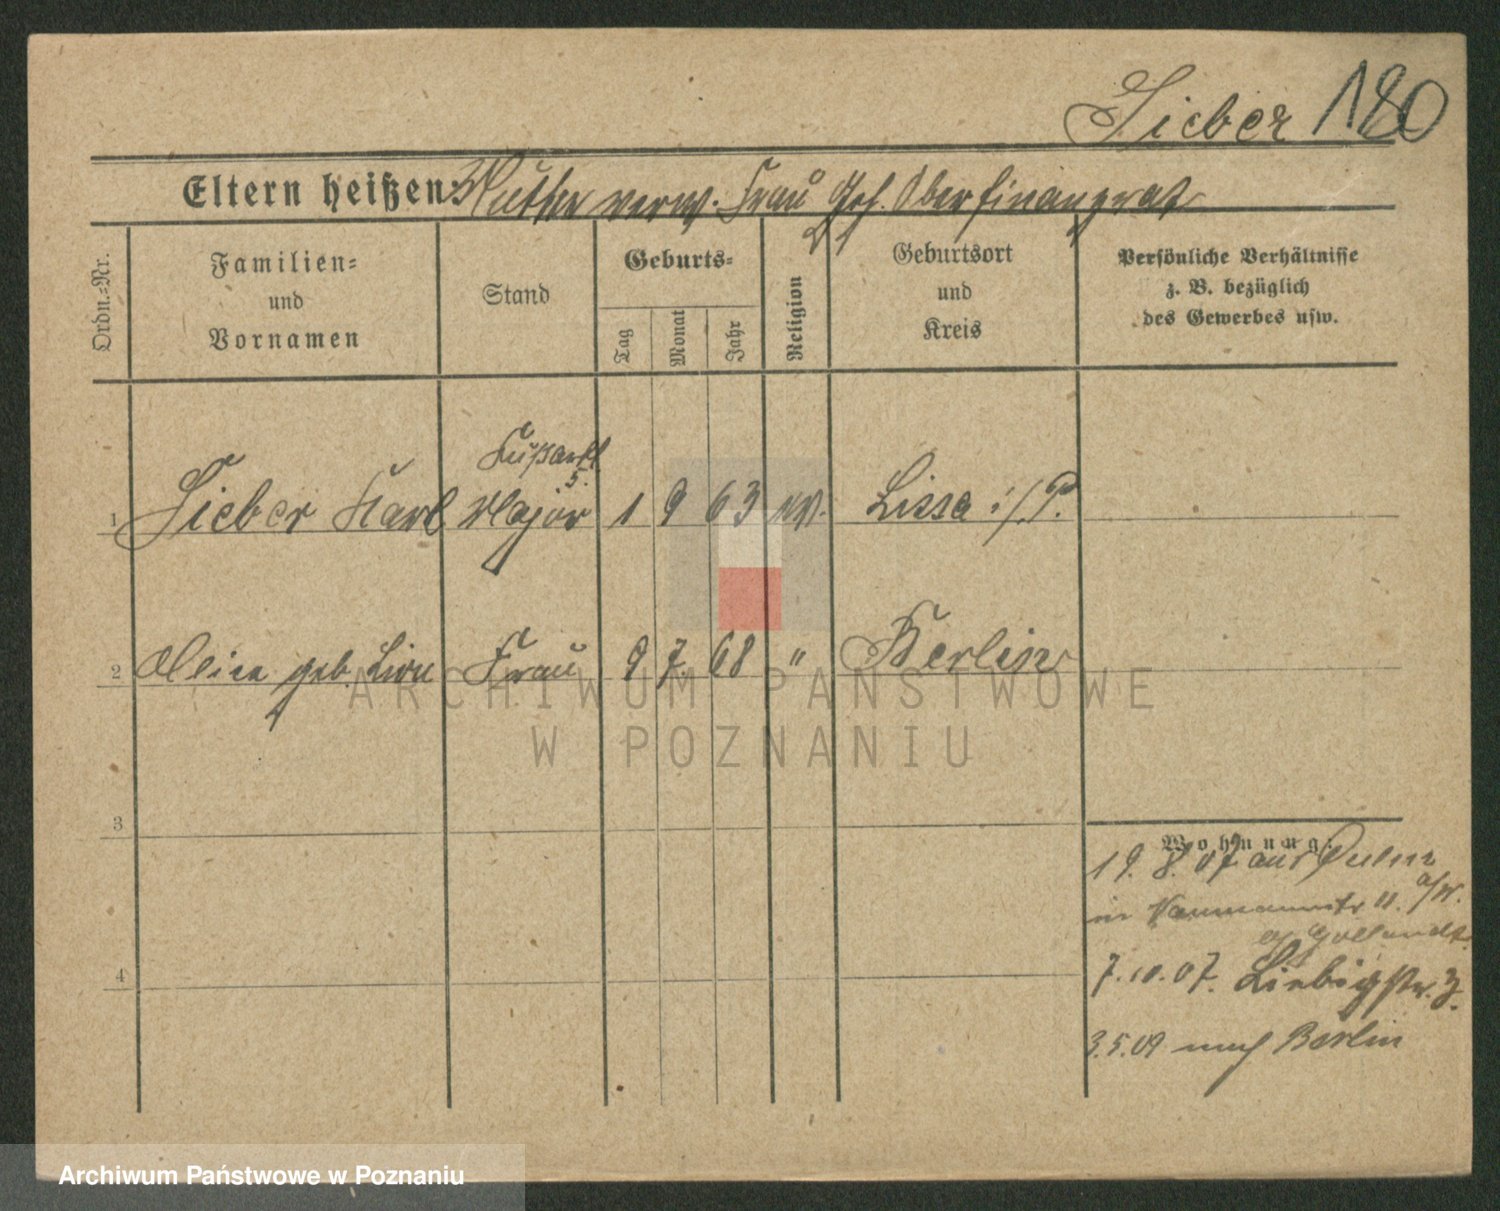 Sieber 180
Eltern heißen: Mutter verw. Frau Geh. Oberfinanzrat
Ordn.-Nr.
Familien-
und
Vornamen
Stand
Geburts-
Tag
Monat
Jahr
Religion
Geburtsort
und
Kreis
Persönliche Verhältnisse
z. B. bezüglich
des Gewerbes usw.
Fußartl
5.
1 Sieber Karl Major 1 9 63 ev. Lissa i/P.
2 Alice geb. Lion Frau 9 7. 68 " Berlin
3
4
Wohnung:
19. 8. 07 aus Culm
a/W.
in Naumannstr 11.
7. 10. 07. Liebigstr. 3.
3. 5. 09 nach Berlin
ARCHIWUM PAŃSTWOWE
W POZNANIU
Archiwum Państwowe w Poznaniu